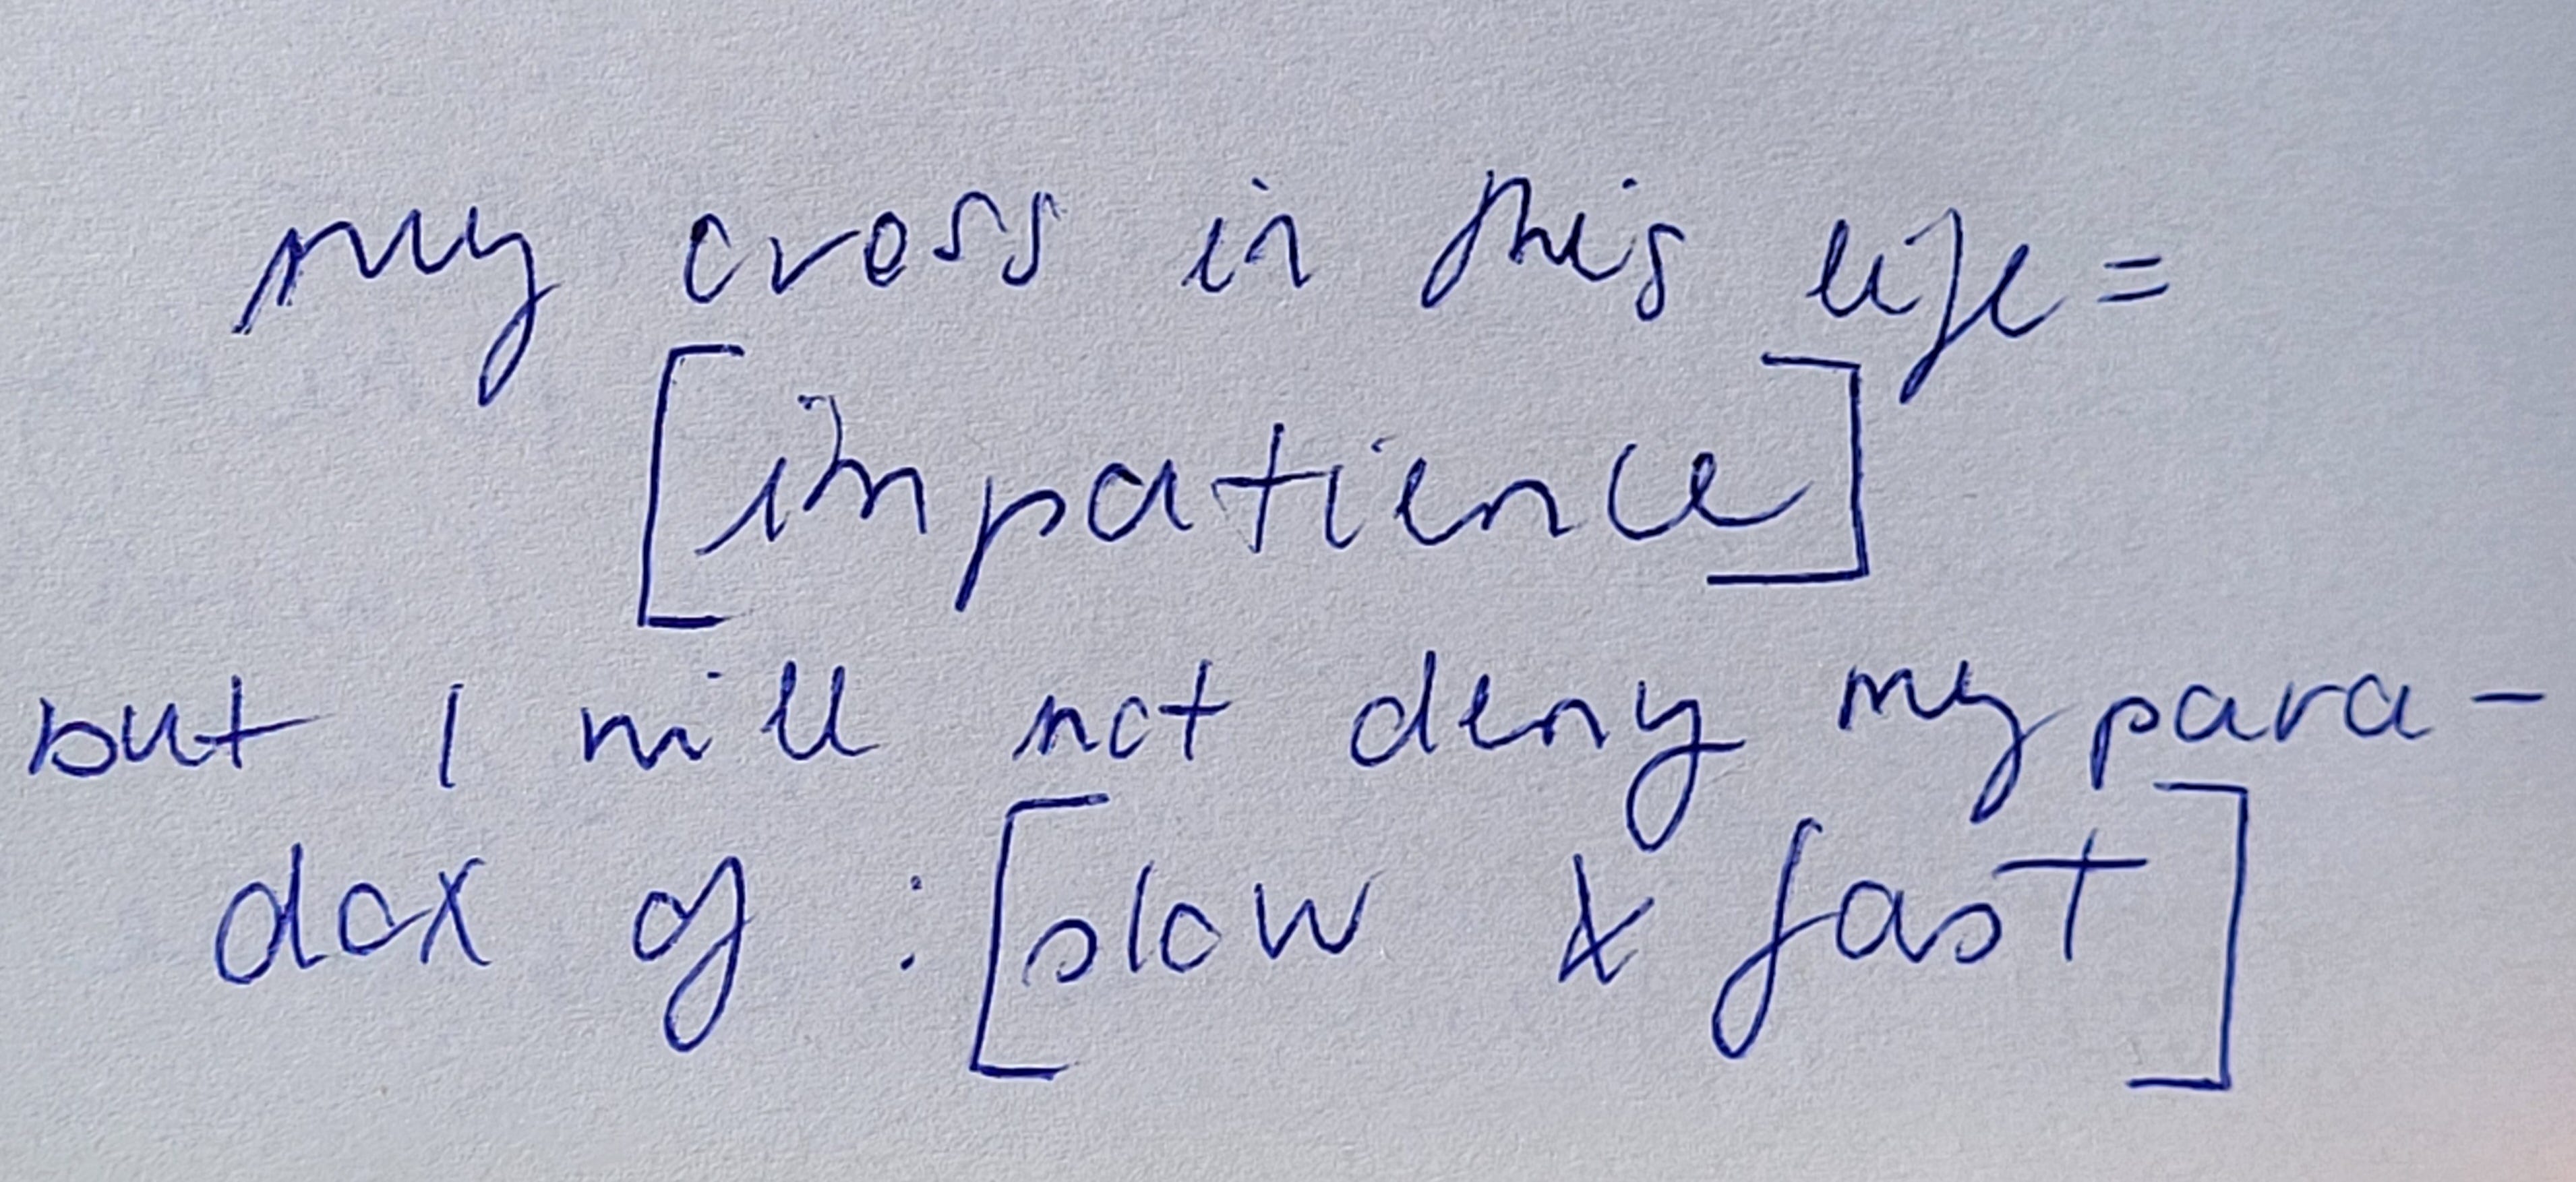 my cross in this life =
[impatience]
but I will not deny my para-
dox of : [slow & fast]